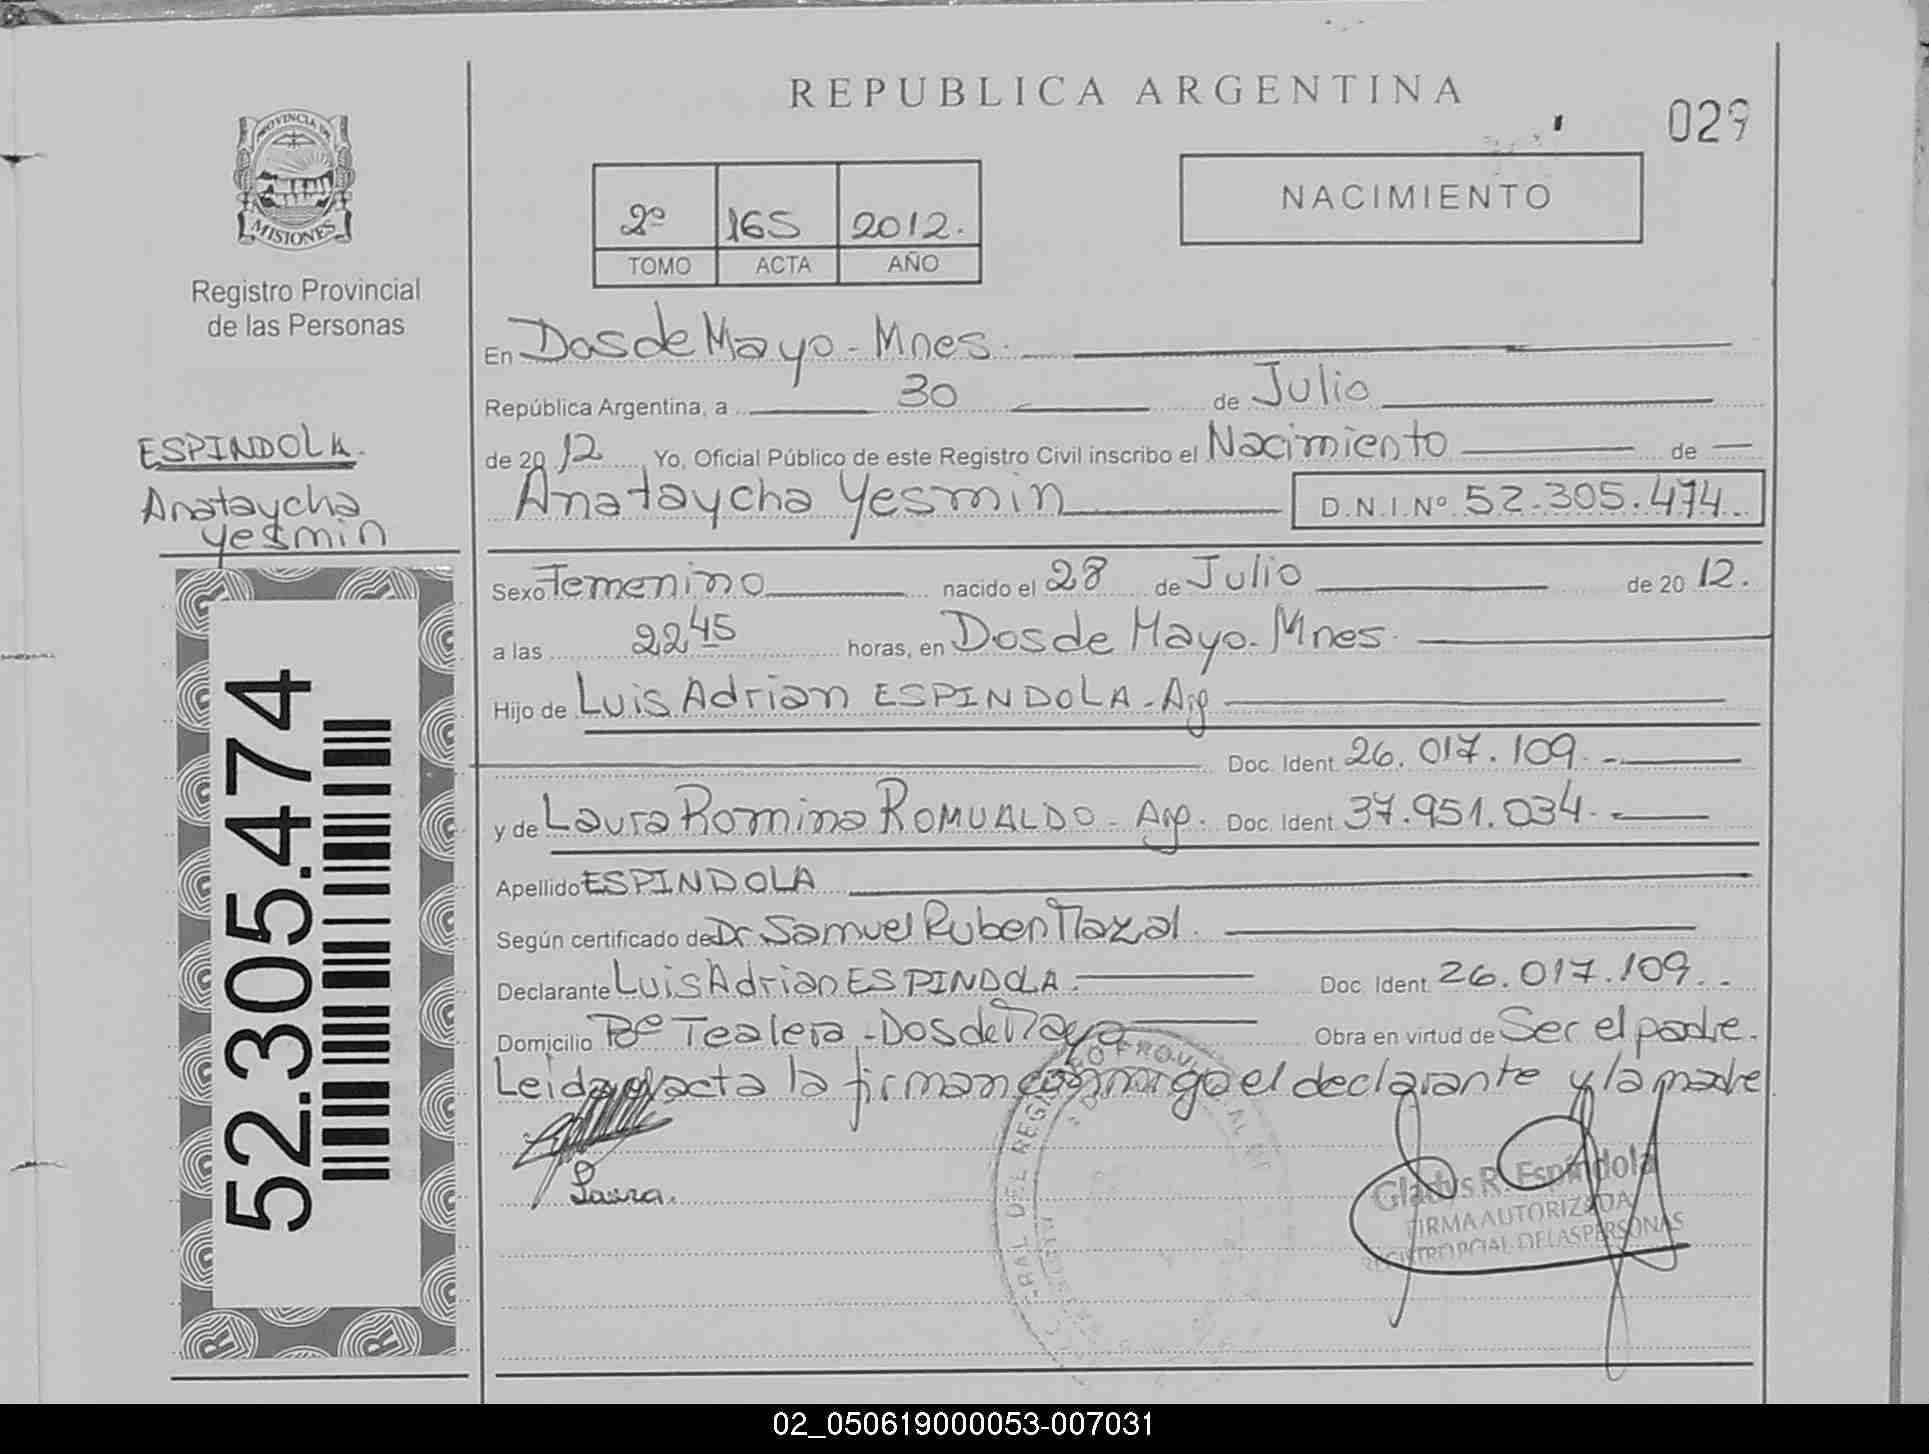 REPUBLICA ARGENTINA
029
PROVINCIA DE
MISIONES
Registro Provincial
de las Personas
2º 165 2012.
TOMO ACTA AÑO
NACIMIENTO
En Dos de Mayo - Mnes.
República Argentina, a 30 de Julio
de 2012 Yo, Oficial Público de este Registro Civil inscribo el Nacimiento de
Anataycha Yesmin D.N.I.Nº 52.305.474.
ESPINDOLA.
Anataycha
Yesmin
52.305.474
Sexo Femenino nacido el 28 de Julio de 2012.
a las 22 45 horas, en Dos de Mayo - Mnes.
Hijo de Luis Adrian ESPINDOLA - Arg
Doc. Ident. 26.017.109.
y de Laura Romina ROMUALDO - Arg. Doc. Ident. 37.951.034.
Apellido ESPINDOLA
Según certificado de Dr Samuel Ruben Mazal.
Declarante Luis Adrian ESPINDOLA. Doc. Ident. 26.017.109.
Domicilio Bº Tealera - Dos de Mayo Obra en virtud de Ser el padre.
Leida el acta la firman conmigo el declarante y la madre
Laura.
Gladys R. Espíndola
FIRMA AUTORIZADA
REGISTRO PCIAL. DE LAS PERSONAS
02_050619000053-007031